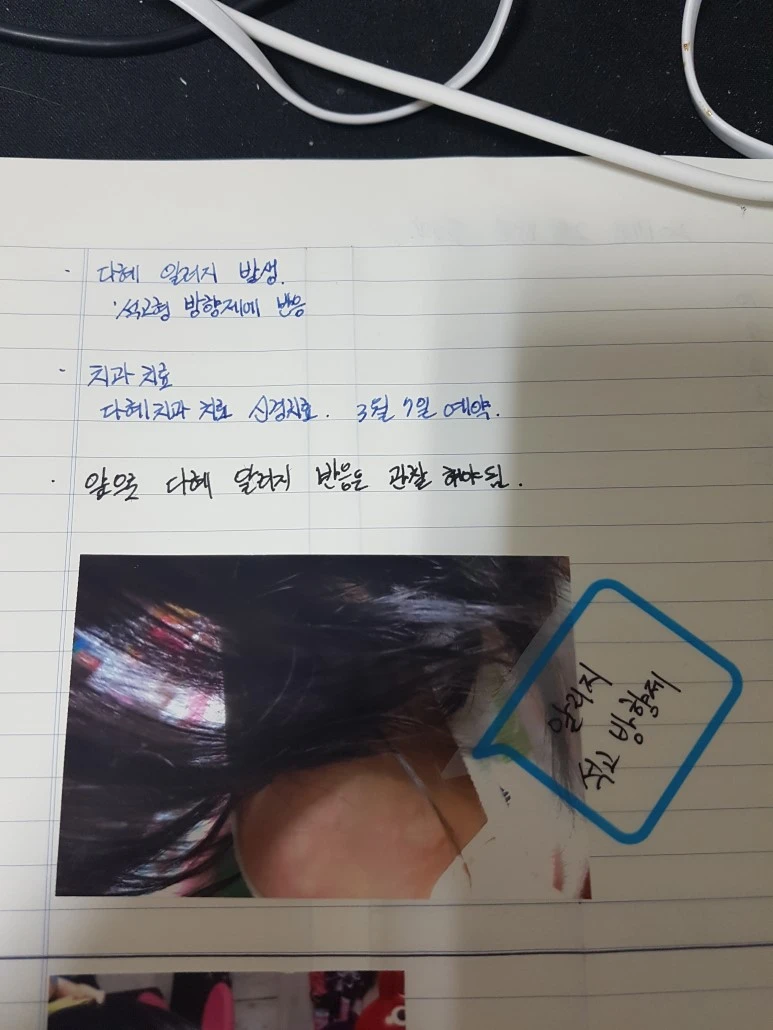 · 다혜 알러지 발생.
· 석고형 방향제에 반응
· 치과 치료
다혜 치과 치료 신경치료. 3월 7일 예약.
· 앞으로 다혜 알러지 반응은 관찰 해야 됨.
알러지
석고 방향제